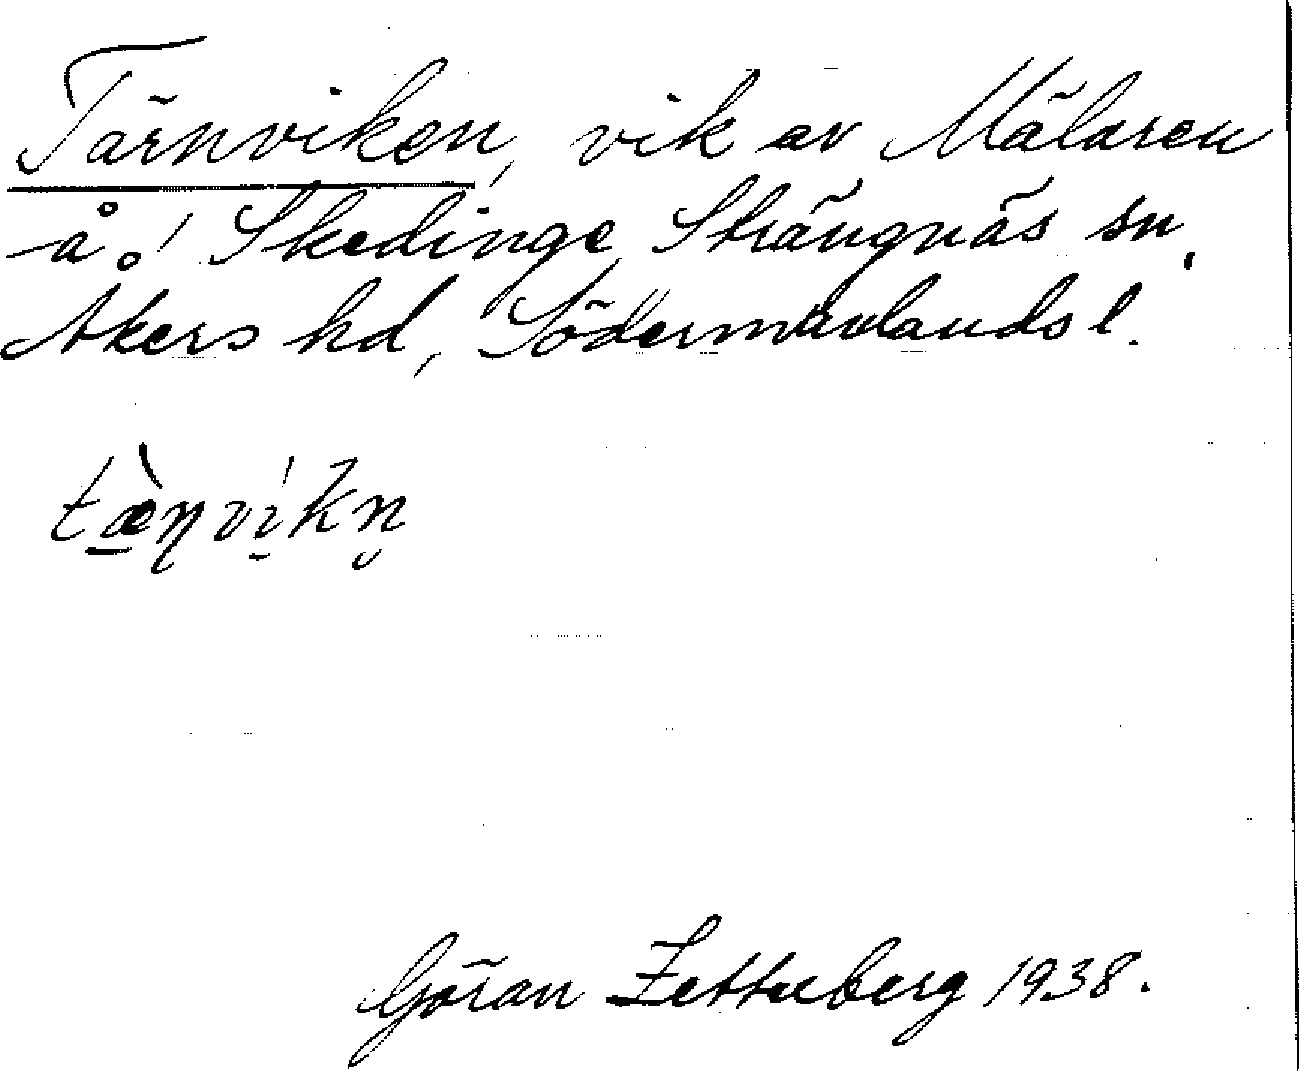 Tärnviken, vik av Mälaren
å Skedinge, Strängnäs sn,
Åkers hd, Södermanlands l.
tæ̀ṇvi̍kn̥
Göran Zetterberg 1938.